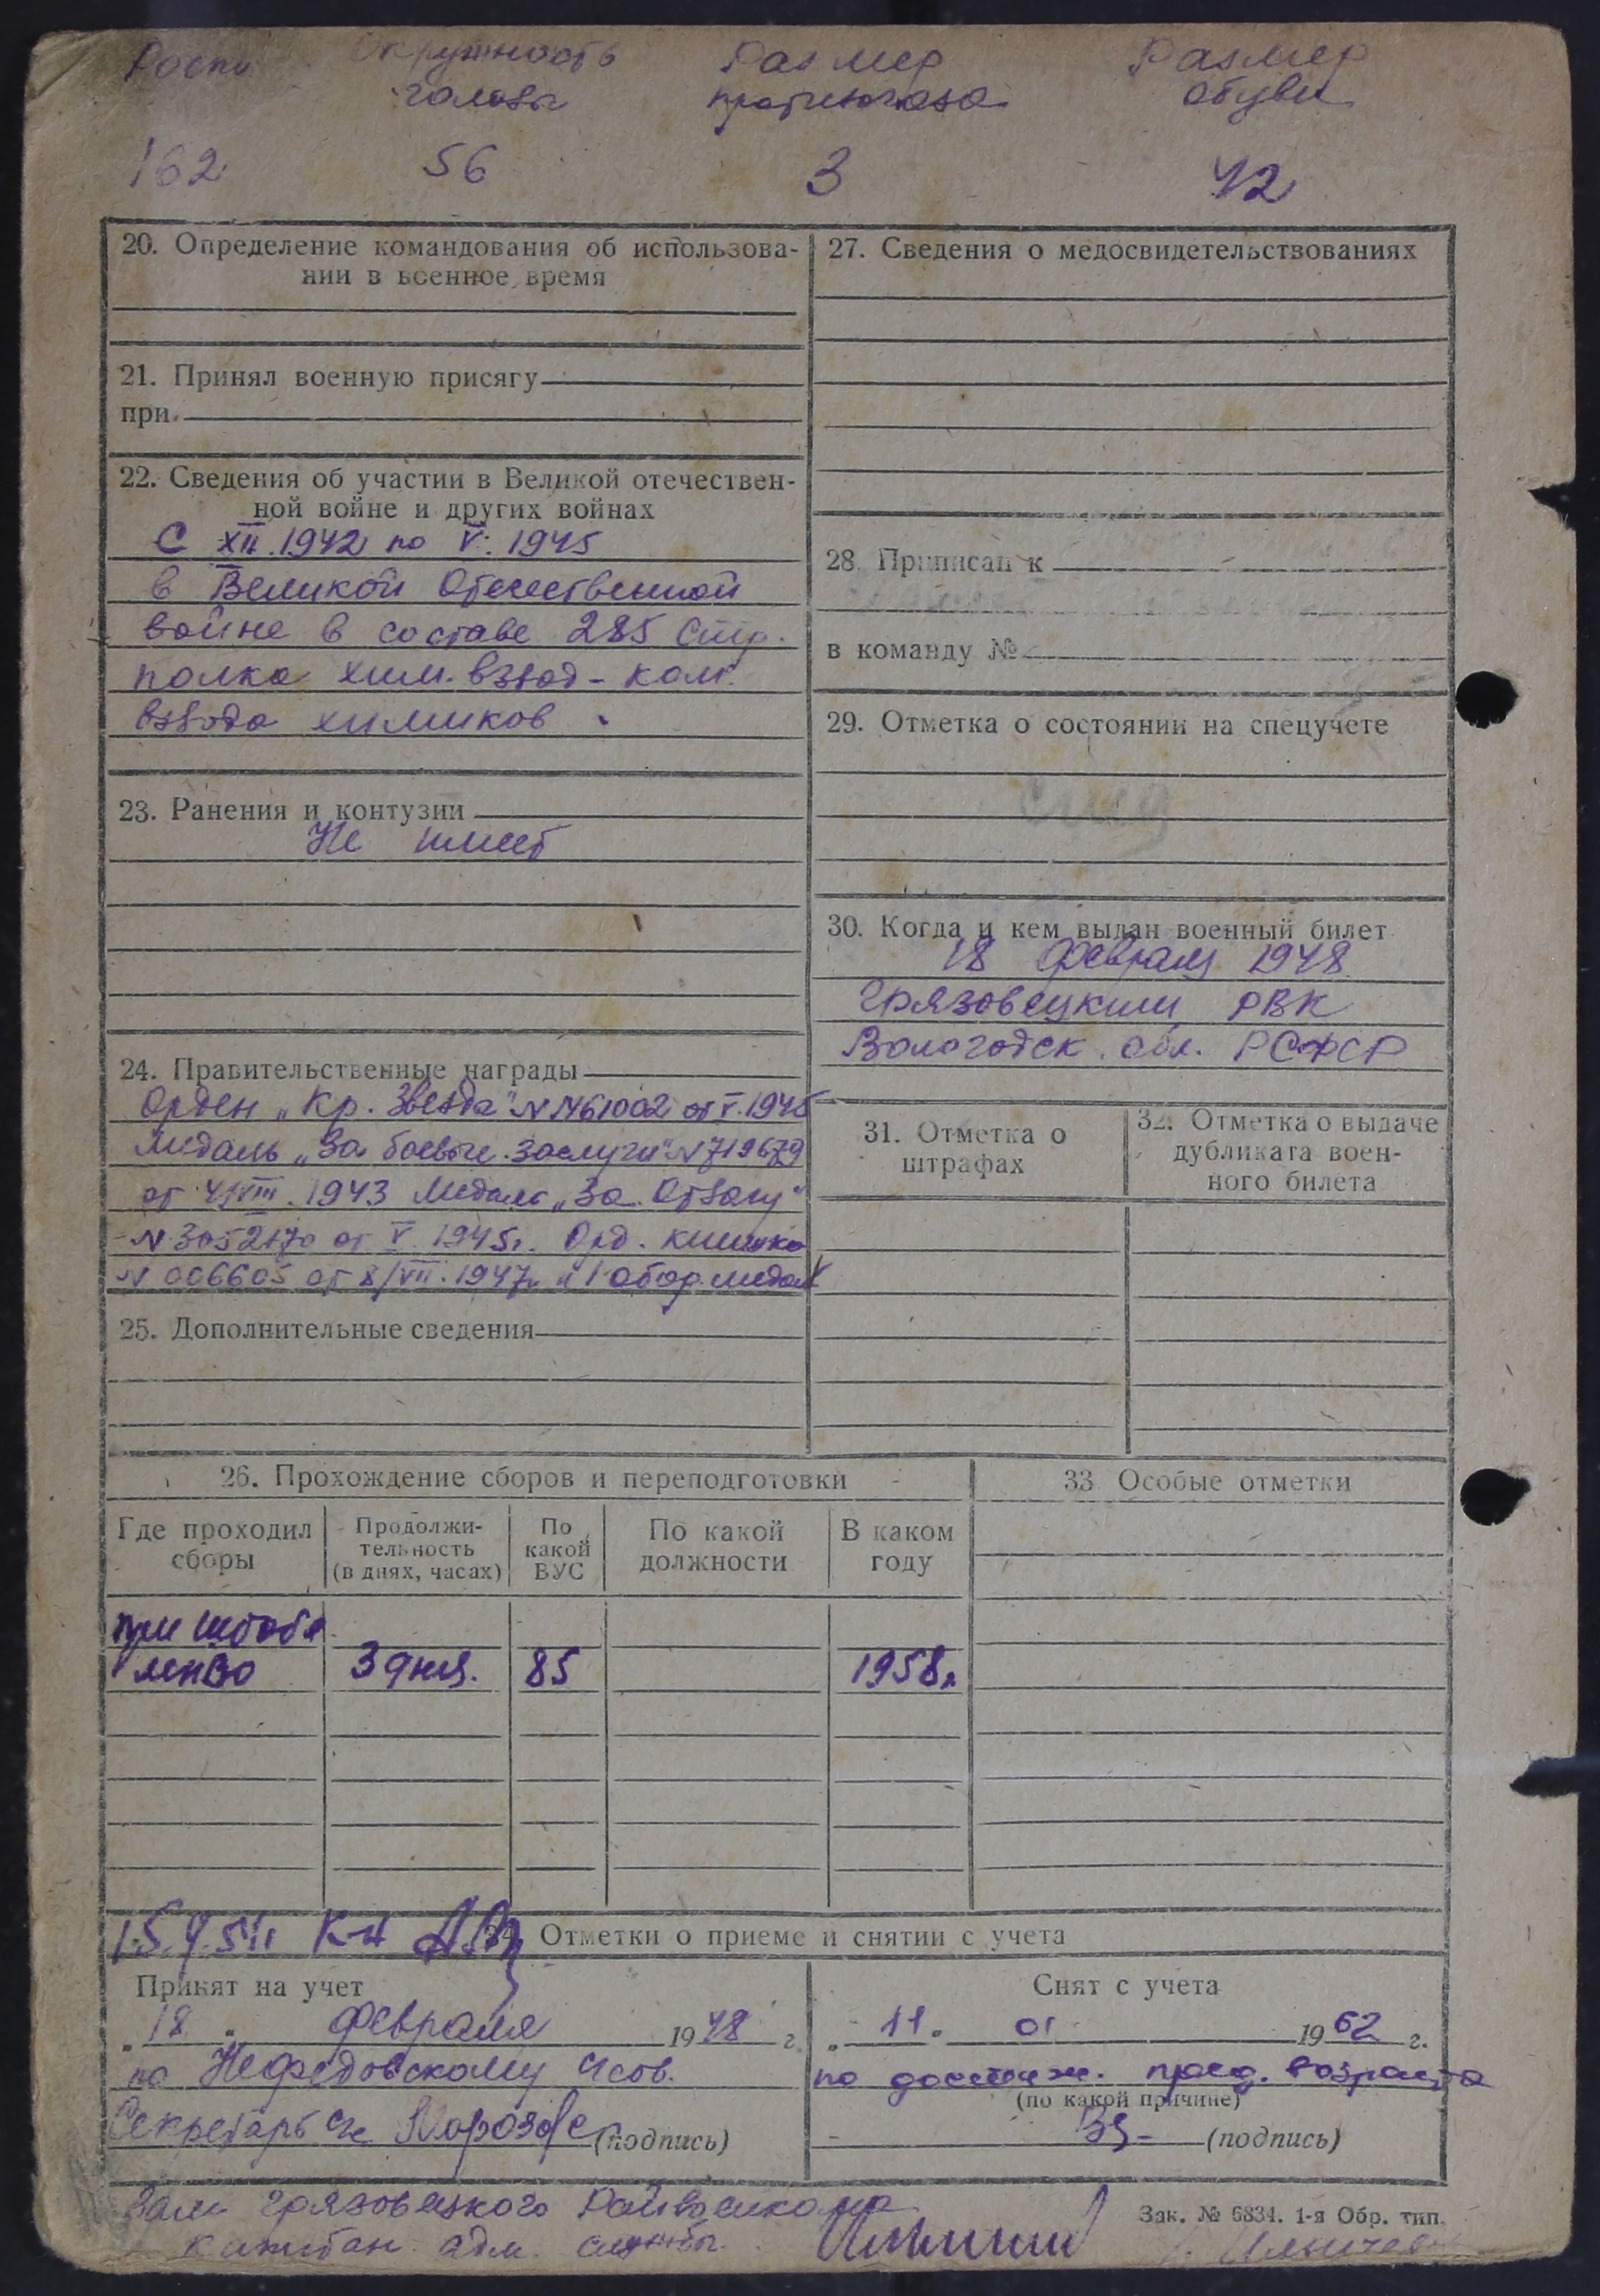 Рост Окружность Размер Размер
головы противогаза обуви
162 56 3 42
20. Определение командования об использова-
нии в военное время
21. Принял военную присягу
при
22. Сведения об участии в Великой отечествен-
ной войне и других войнах
С XII.1942 по V. 1945
в Великой Отечественной
войне в составе 285 Стр.
полка хим. взвод - ком.
взвода химиков
23. Ранения и контузии
Не имеет
24. Правительственные награды
Орден „Кр. Звезда" N 1461002 от V.1945
Медаль „За боевые заслуги" N 719679
от 4/VIII.1943 Медаль „За Отвагу"
N 3052170 от V 1945г. Орд. книжка
N 006605 от 8/VII.1947г.
25. Дополнительные сведения
27. Сведения о медосвидетельствованиях
28. Приписан к
в команду №
29. Отметка о состоянии на спецучете
30. Когда и кем выдан военный билет
18 февраля 1948
Грязовецким РВК
Вологодск. обл. РСФСР
31. Отметка о
штрафах
32. Отметка о выдаче
дубликата воен-
ного билета
26. Прохождение сборов и переподготовки
Где проходил
сборы
Продолжи-
тельность
(в днях, часах)
По
какой
ВУС
По какой
должности
В каком
году
при штабе
3 дня. 85 1958г.
33 Особые отметки
15.9.51г.
34. Отметки о приеме и снятии с учета
Принят на учет
„18" февраля 1948 г.
по Нефедовскому
Секретарь Морозов (подпись)
Снят с учета
„11" 01 1962 г.
по достиж. пред. возраста
(по какой причине)
(подпись)
Зам Грязовецкого Райвоенкома
капитан адм. службы
Зак. № 6834. 1-я Обр. тип.